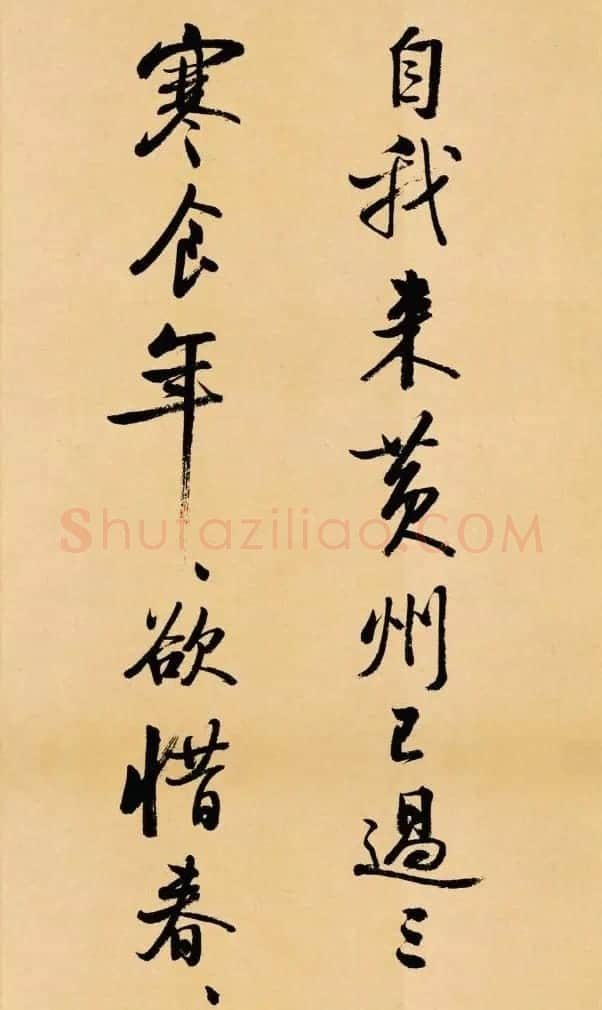 自我来黄州已過三
寒食年、欲惜春、
Shufaziliao.COM